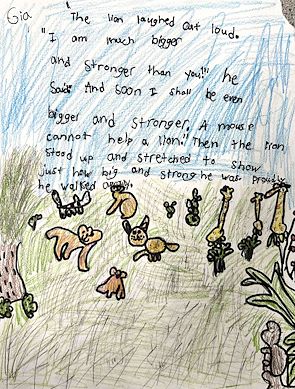 Gia
The lion laughed out loud.
"I am much bigger
and stronger than you!" he
said. And soon I shall be even
bigger and stronger. A mouse
cannot help a lion." Then the lion
stood up and stretched to show
just how big and strong he was. proudly
he walked away.